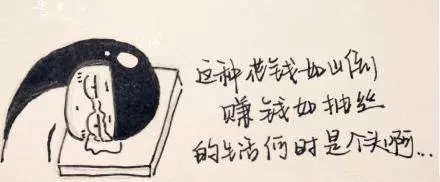 这种花钱如山倒
赚钱如抽丝
的生活何时是个头啊...